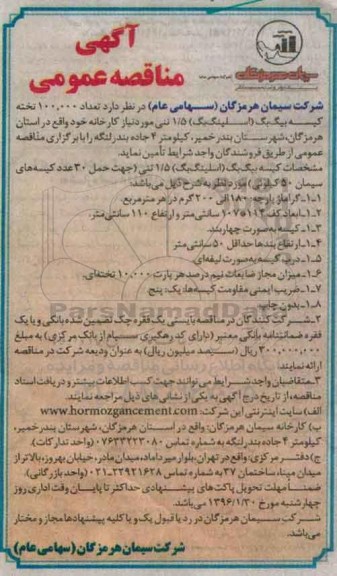 آگهی
مناقصه عمومی
سیمان هرمزگان
شرکت سیمان هرمزگان (سهامی عام) در نظر دارد تعداد ۱۰۰,۰۰۰ تخته
کیسه بیگ‌بگ (اسلینگ‌بگ) ۱/۵ تنی موردنیاز کارخانه خود واقع در استان
هرمزگان، شهرستان بندر خمیر، کیلومتر ۴ جاده بندر لنگه را با برگزاری مناقصه
عمومی از طریق فروشندگان واجد شرایط تأمین نماید.
مشخصات کیسه بیگ‌بگ (اسلینگ‌بگ) ۱/۵ تنی (جهت حمل ۳۰ عدد کیسه‌های
سیمان ۵۰ کیلوئی) مورد نظر به شرح ذیل می‌باشد:
۱-۱- گرماژ پارچه: ۱۸۰ الی ۲۰۰ گرم در هر مترمربع.
۱-۲- ابعاد کف ۱۱۳*۱۰۷ سانتی‌متر و ارتفاع ۱۱۰ سانتی‌متر.
۱-۳- کیسه به‌صورت چهاربند.
۱-۴- ارتفاع بندها حداقل ۵۰ سانتی‌متر
۱-۵- درب کیسه به‌صورت لیفه‌ای.
۱-۶- میزان مجاز ضایعات نیم درصد هر پارت ۱۰,۰۰۰ تخته‌ای.
۱-۷- ضریب ایمنی مقاومت کیسه‌ها: یک: پنج
۱-۸- بدون چاپ
۲- شرکت کنندگان در مناقصه بایستی یک فقره چک تضمین شده بانکی و یا یک
فقره ضمانتنامه بانکی معتبر (دارای کد رهگیری سپام از بانک مرکزی) به مبلغ
۳۰۰,۰۰۰,۰۰۰ ریال (سیصد میلیون ریال) به عنوان ودیعه شرکت در مناقصه
ارائه نمایند.
۳- متقاضیان واجد شرایط می‌توانند جهت کسب اطلاعات بیشتر و دریافت اسناد
مناقصه از تاریخ درج آگهی به یکی از نشانی‌های ذیل مراجعه نمایند.
الف) سایت اینترنتی این شرکت: www.hormozgancement.com
ب) کارخانه سیمان هرمزگان: واقع در استان هرمزگان، شهرستان بندر خمیر،
کیلومتر ۴ جاده بندر لنگه به شماره تماس ۰۷۶۳۳۲۲۳۰۸۰ (واحد تدارکات).
ج) دفتر مرکزی: واقع در تهران، بلوار میرداماد، میدان مادر، خیابان بهروز، بالاتر از
میدان مینا، ساختمان ۳۷ به شماره تماس ۲۲۹۲۱۶۲۸-۰۲۱ (واحد بازرگانی).
ضمناً مهلت تحویل پاکت‌های پیشنهادی حداکثر تا پایان وقت اداری روز
چهارشنبه مورخ ۱۳۹۶/۱/۳۰ می‌باشد.
شرکت سیمان هرمزگان در رد یا قبول یک و یا کلیه پیشنهادها مجاز و مختار
می‌باشد.
شرکت سیمان هرمزگان (سهامی عام)